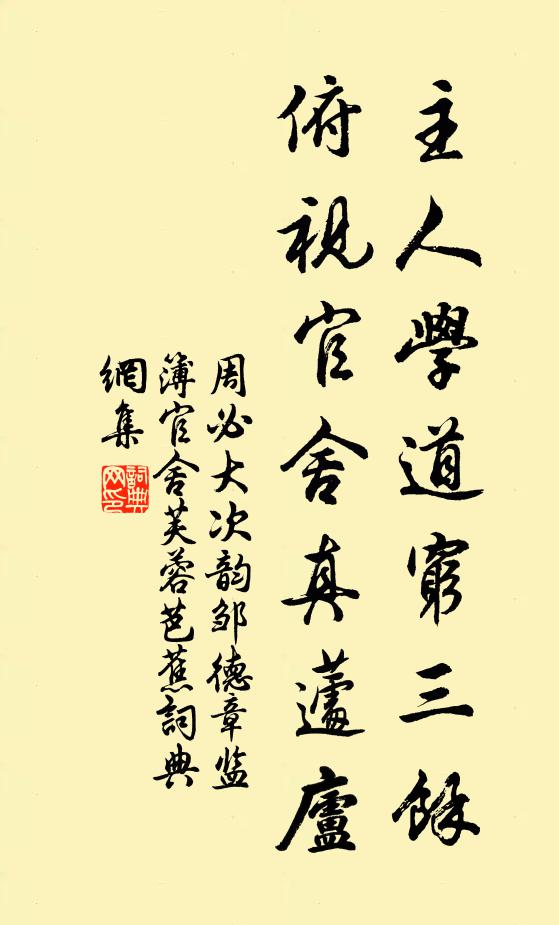 主人學道窮三餘
俯視官舍真蘧廬
周必大次韵邹德章监
簿官舍芙蓉芭蕉詞典
網集
詞典
网印